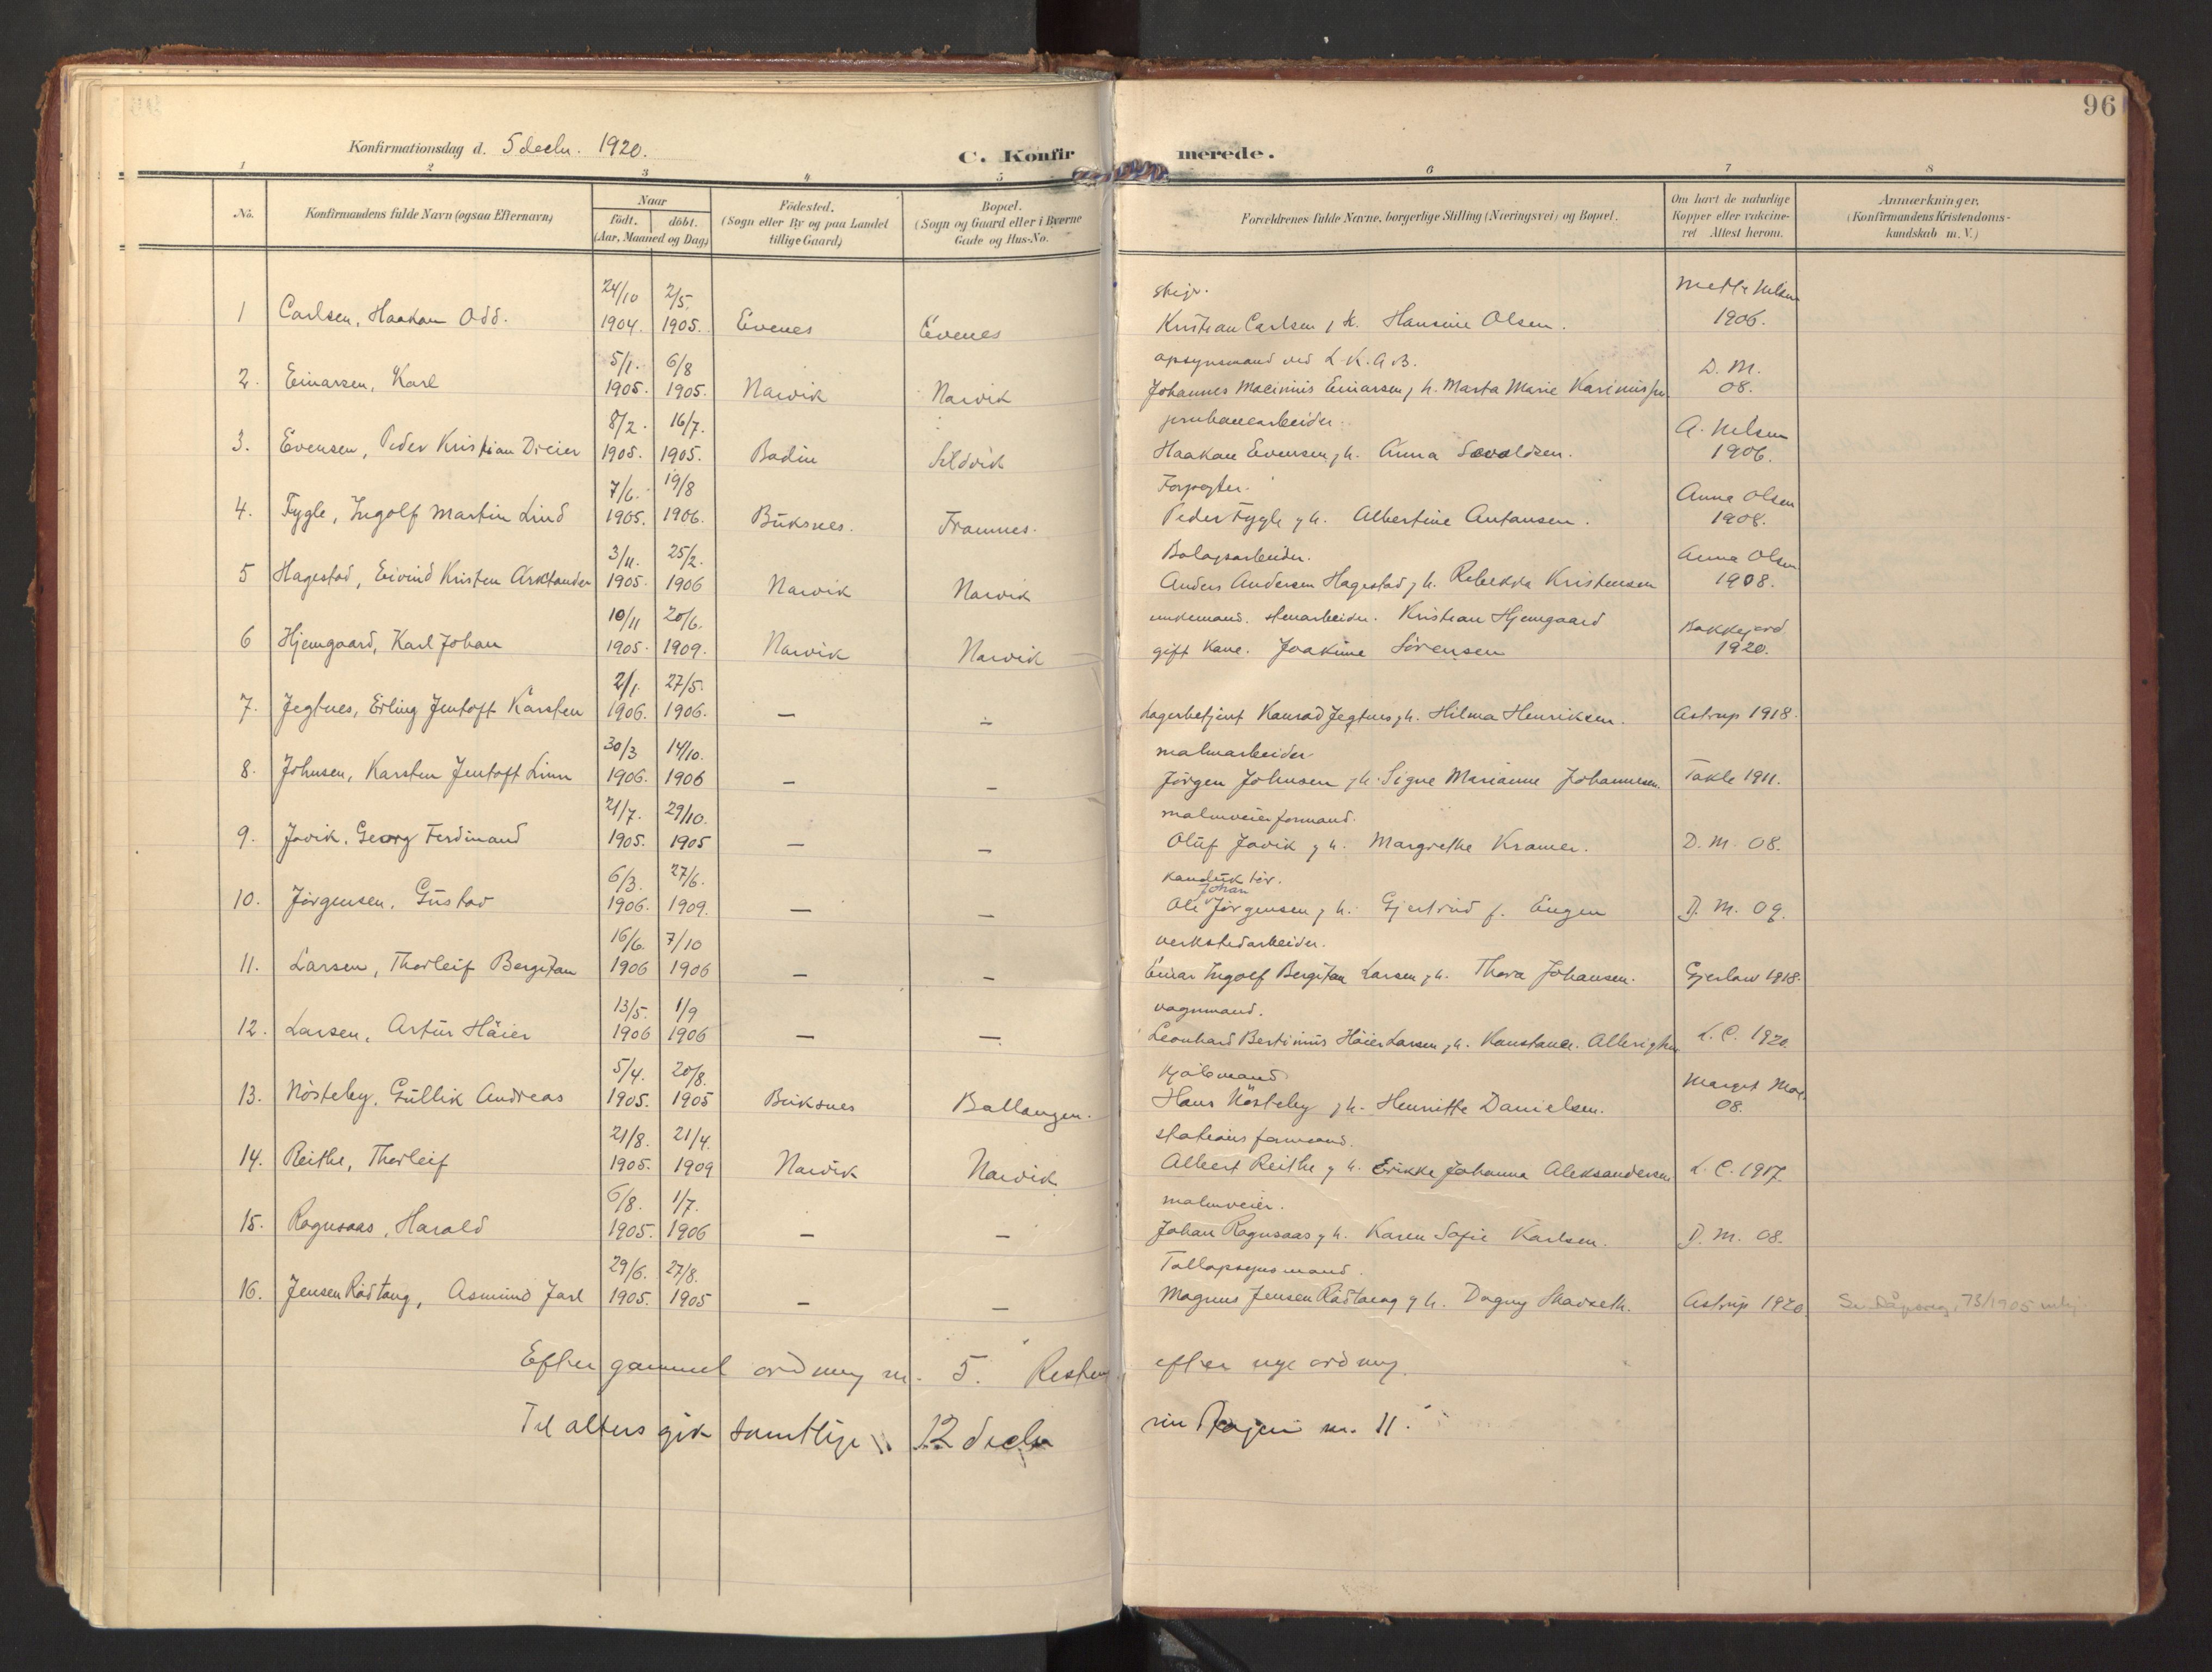 96
Konfirmationsdag d. 5 decbr. 1920.
C. Konfirmerede.
1 2 3 4 5 6 7 8
No.
Konfirmandens fulde Navn (ogsaa Efternavn)
Naar
født. døbt.
(Aar, Maaned og Dag)
Fødested.
(Sogn eller By og paa Landet
tillige Gaard)
Bopæl.
(Sogn og Gaard eller i Byerne
Gade og Hus-No.
Forældrenes fulde Navne, borgerlige Stilling (Næringsvei) og Bopæl.
Om havt de naturlige
Kopper eller vakcine-
ret Attest herom.
Anmærkninger.
(Konfirmandens Kristendoms-
kundskab m. V.)
24/10 2/5. Mette Nelsen
1 Carlsen, Haakan Odd. 1904. 1905. Evenes Evenes Kristian Carlsen, h. Hansine Olsen. 1906.
5/1. 6/8 opsynsmand ved L.K.A.B. D. M.
2. Einarsen, Karl 1905. 1905. Narvik Narvik Johannes Einarsen, h. Marta Marie 08.
8/2. 16/7. jernbanearbeider. A. Nelsen
3. Evensen, Peder Kristian Dreier 1905. 1905. Bodin Sildvik Haakan Evensen, h. Anna Sevaldsen. 1906.
7/6. 19/8 Forpagter. Anna Olsen
4. Fygle, Ingolf Martin Lind 1905. 1906. Buksnes. Framnes. Peder Fygle g h. Albertine Antonsen. 1908.
3/11. 25/2. Bolagsarbeider. Anna Olsen
5 Hagestad, Eivind Kristen Arktander 1905. 1906 Narvik Narvik Anders Andersen Hagestad, h. Rebekka Kristensen 1908.
10/11 20/6. enkemand. stenarbeider. Kristian Hjemgaard Bakkejord
6 Hjemgaard, Karl Johan 1905. 1909. Narvik Narvik gift Kane. Joakime Sørensen 1920.
2/1. 27/5.
7. Jegtnes, Erling Jentoft Karsten 1906. 1906. — — Lagerbetjent Konrad Jegtnes, h. Hilma Henriksen. Astrup 1918.
30/3 14/10. malmarbeider
8. Johnsen, Karsten Jentoft Linn 1906. 1906 — — Jørgen Johnsen, h. Signe Marianne Johannesen. Takle 1911.
21/7. 29/10. malmveierformand.
9. Jovik, Georg Ferdinand 1905. 1905 — — Oluf Jovik g h. Margrethe Kramer. D. M. 08.
6/3. 27/6. Konduktør.
Johan
10. Jørgensen, Gustav 1906. 1909. — — Ole Jørgensen, h. Gjertrud f. Eugen D. M. 09.
16/6. 7/10 verkstedarbeider.
11. Larsen, Thorleif Bergitan 1906 1906 — — Einar Ingolf Bergitan Larsen, h. Thora Johansen. Gjerlaw 1918.
13/5. 1/9 vognmand.
12. Larsen, Artur Häier 1906 1906 — — Leonhard Bertinius Häier Larsen, h. Konstance L. C. 1920.
5/4. 20/8. Marget Moe
13. Nösteby, Gullik Andreas 1905. 1905 Buksnes Ballangen. Hans Nösteby, h. Henritte Danielsen. 08.
21/8. 21/4. stations formand.
14. Reithe, Thorleif 1905. 1909 Narvik Narvik Albert Reithe g h. Erikke Johanna Aleksandersen L. C. 1917.
6/8. 1/7. malmveier.
15. Rognsaas, Harald 1905. 1906 — — Johan Rognsaas g h. Karen Sofie Karlsen. D. M. 08.
29/6. 27/8. Tollopsynsmand.
16. Jensen Rödtang, Asmund Jarl 1905. 1905 — — Magnus Jensen Rödtang g h. Dagny Skadseth. Astrup 1920 Se dåpsreg. 73/1905
Efter gammel ordning nr. 5. Resten efter nye ordning.
Til alters gik samtlige 12 decbr nr. 11.